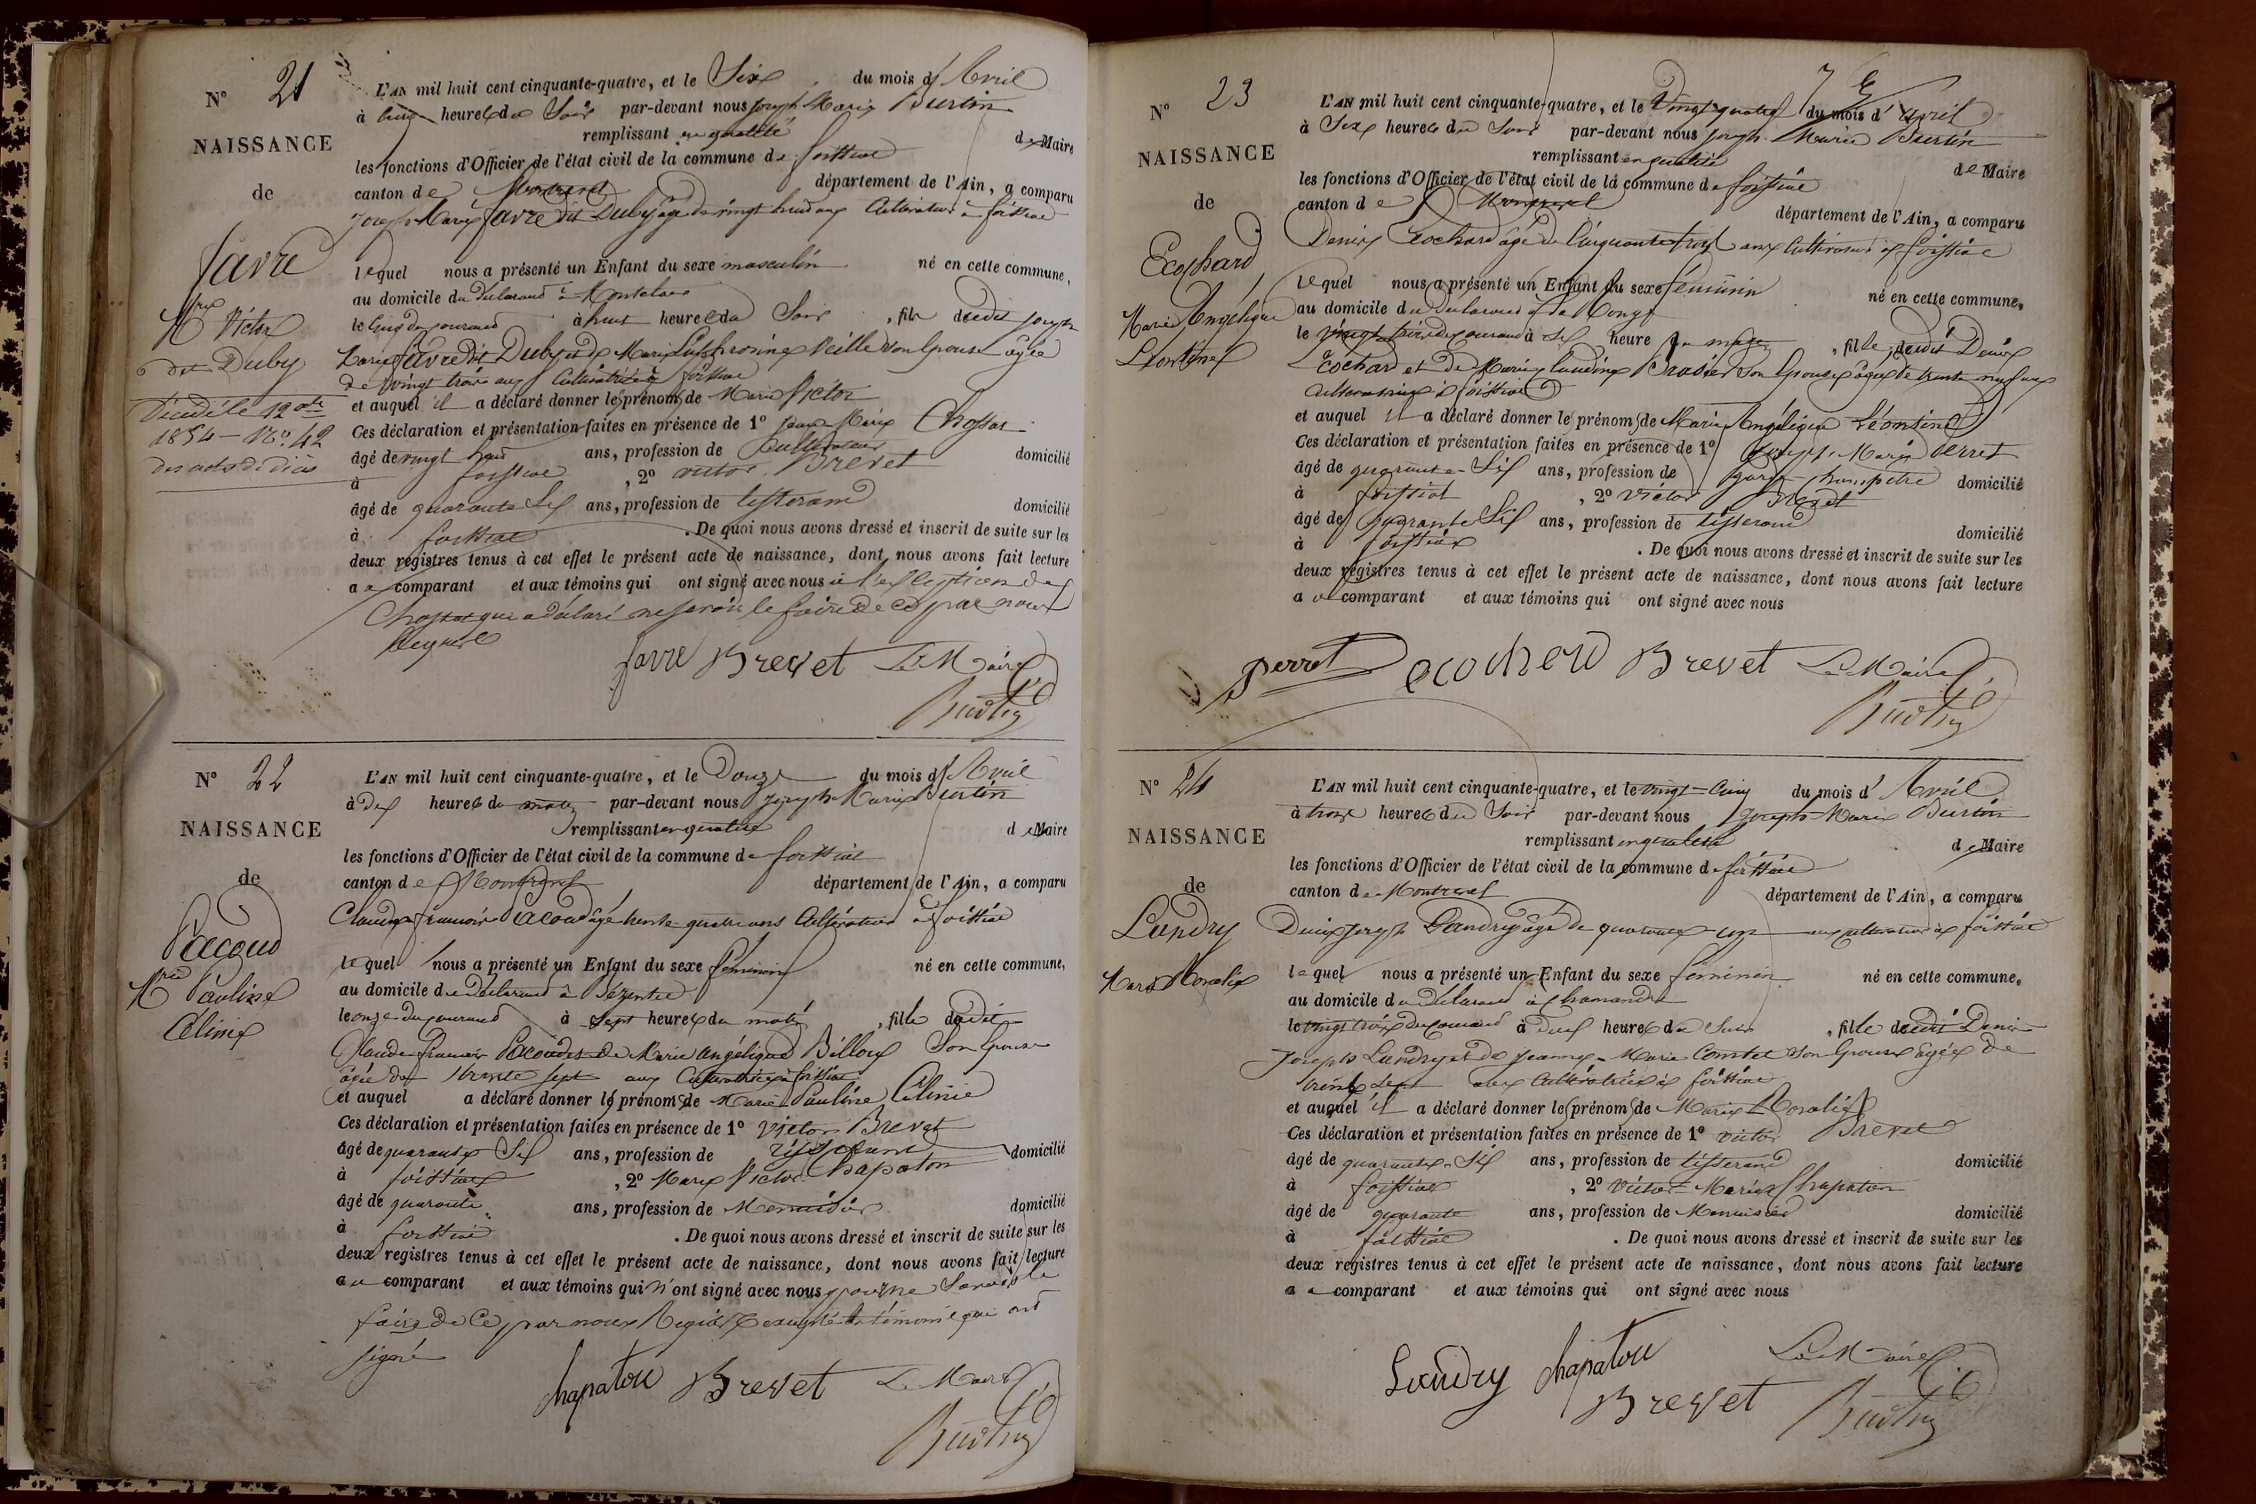 N° 21
NAISSANCE
de
Favre
Mie Victor
dit Duby
Décédé le 12 8bre
1854 - N° 42
des actes de décès
L'AN mil huit cent cinquante-quatre, et le Six du mois d'Avril
à cinq heures du Soir par-devant nous Joseph Marie Burtin
remplissant en qualité de Maire
les fonctions d'Officier de l'état civil de la commune de foissiat
canton de Montrevel département de l'Ain, a comparu
Joseph Marie favre dit Duby âgé de vingt huit ans Cultivateur à foissiat
lequel nous a présenté un Enfant du sexe masculin né en cette commune,
au domicile du déclarant à
le Cinq du courant à huit heures du Soir, fils dudit joseph
Marie favre dit Duby et de Marie Euphrosine Veille son épouse âgée
de vingt trois ans Cultivatrice à foissiat
et auquel il a déclaré donner les prénoms de Marie Victor
Ces déclaration et présentation faites en présence de 1° Marie
âgé de vingt ans, profession de Cultivateur domicilié
à foissiat, 2° victor Brevet
âgé de quarante Six ans, profession de tisserand domicilié
à foissiat. De quoi nous avons dressé et inscrit de suite sur les
deux registres tenus à cet effet le présent acte de naissance, dont nous avons fait lecture
au comparant et aux témoins qui ont signé avec nous à l'exception de
que a déclaré ne savoir le faire de ce par nous
Requis
favre Brevet Le Maire
Burtin
N° 22
NAISSANCE
de
Pacoud
Mrie Pauline
Célinie
L'AN mil huit cent cinquante-quatre, et le Douze du mois d'Avril
à dix heures du matin par-devant nous Joseph Marie Burtin
remplissant en qualité de Maire
les fonctions d'Officier de l'état civil de la commune de foissiat
canton de Montrevel département de l'Ain, a comparu
Claude françois Pacoud âgé trente quatre ans Cultivateur à foissiat
lequel nous a présenté un Enfant du sexe féminin né en cette commune,
au domicile du déclarant à
le onze du courant à Sept heures du matin, fille dudit
Claude françois Pacoud et de Marie Angélique Billoux Son épouse
âgée de trente sept ans Cultivatrice à foissiat
et auquel a déclaré donner les prénoms de Marie Pauline Célinie
Ces déclaration et présentation faites en présence de 1° victor Brevet
âgé de quarante Six ans, profession de tisserand domicilié
à foissiat, 2° Marie Victor Chapaton
âgé de quarante ans, profession de Menuisier domicilié
à foissiat. De quoi nous avons dressé et inscrit de suite sur les
deux registres tenus à cet effet le présent acte de naissance, dont nous avons fait lecture
au comparant et aux témoins qui n'ont signé avec nous pour ne Savoir le
faire de ce par nous Requis excepté les témoins qui ont
signé
Chapatou Brevet Le Maire
Burtin
N° 23
NAISSANCE
de
Ecochard
Marie Angélique
Léontine
L'AN mil huit cent cinquante-quatre, et le Vingt quatre du mois d'avril
à Six heures du Soir par-devant nous Joseph Marie Burtin
remplissant en qualité de Maire
les fonctions d'Officier de l'état civil de la commune de foissiat
canton de Montrevel département de l'Ain, a comparu
Denis Ecochard âgé de Cinquante trois ans Cultivateur à foissiat
lequel nous a présenté un Enfant du sexe féminin né en cette commune,
au domicile du déclarant à
le vingt trois du courant à Six heure du matin, fille dudit Denis
Ecochard et de Marie Claudine Brasier son épouse âgée de trente neuf ans
Cultivatrice à foissiat
et auquel il a déclaré donner les prénoms de Marie Angélique Léontine
Ces déclaration et présentation faites en présence de 1° Joseph Marie Perret
âgé de quarante Six ans, profession de garde champêtre domicilié
à foissiat, 2° victor Brevet
âgé de quarante Six ans, profession de tisserand domicilié
à foissiat. De quoi nous avons dressé et inscrit de suite sur les
deux registres tenus à cet effet le présent acte de naissance, dont nous avons fait lecture
au comparant et aux témoins qui ont signé avec nous
perret ecocherd Brevet Le Maire
Burtin
N° 24
NAISSANCE
de
Landry
Marie Rosalie
L'AN mil huit cent cinquante-quatre, et le vingt-Cinq du mois d'Avril
à trois heures du Soir par-devant nous Joseph Marie Burtin
remplissant en qualité de Maire
les fonctions d'Officier de l'état civil de la commune de foissiat
canton de Montrevel département de l'Ain, a comparu
Denis Joseph Landry âgé de quarante un ans cultivateur à foissiat
lequel nous a présenté un Enfant du sexe féminin né en cette commune,
au domicile du déclarant à
le vingt trois du courant à deux heures du Soir, fille dudit Denis
Joseph Landry et de jeanne Marie Comtet son épouse âgée de
trente sept ans Cultivatrice à foissiat
et auquel il a déclaré donner les prénoms de Marie Rosalie
Ces déclaration et présentation faites en présence de 1° victor Brevet
âgé de quarante Six ans, profession de tisserand domicilié
à foissiat, 2° Victor Marie Chapaton
âgé de quarante ans, profession de Menuisier domicilié
à foissiat. De quoi nous avons dressé et inscrit de suite sur les
deux registres tenus à cet effet le présent acte de naissance, dont nous avons fait lecture
au comparant et aux témoins qui ont signé avec nous
Landry Chapatou Le Maire
Brevet Burtin